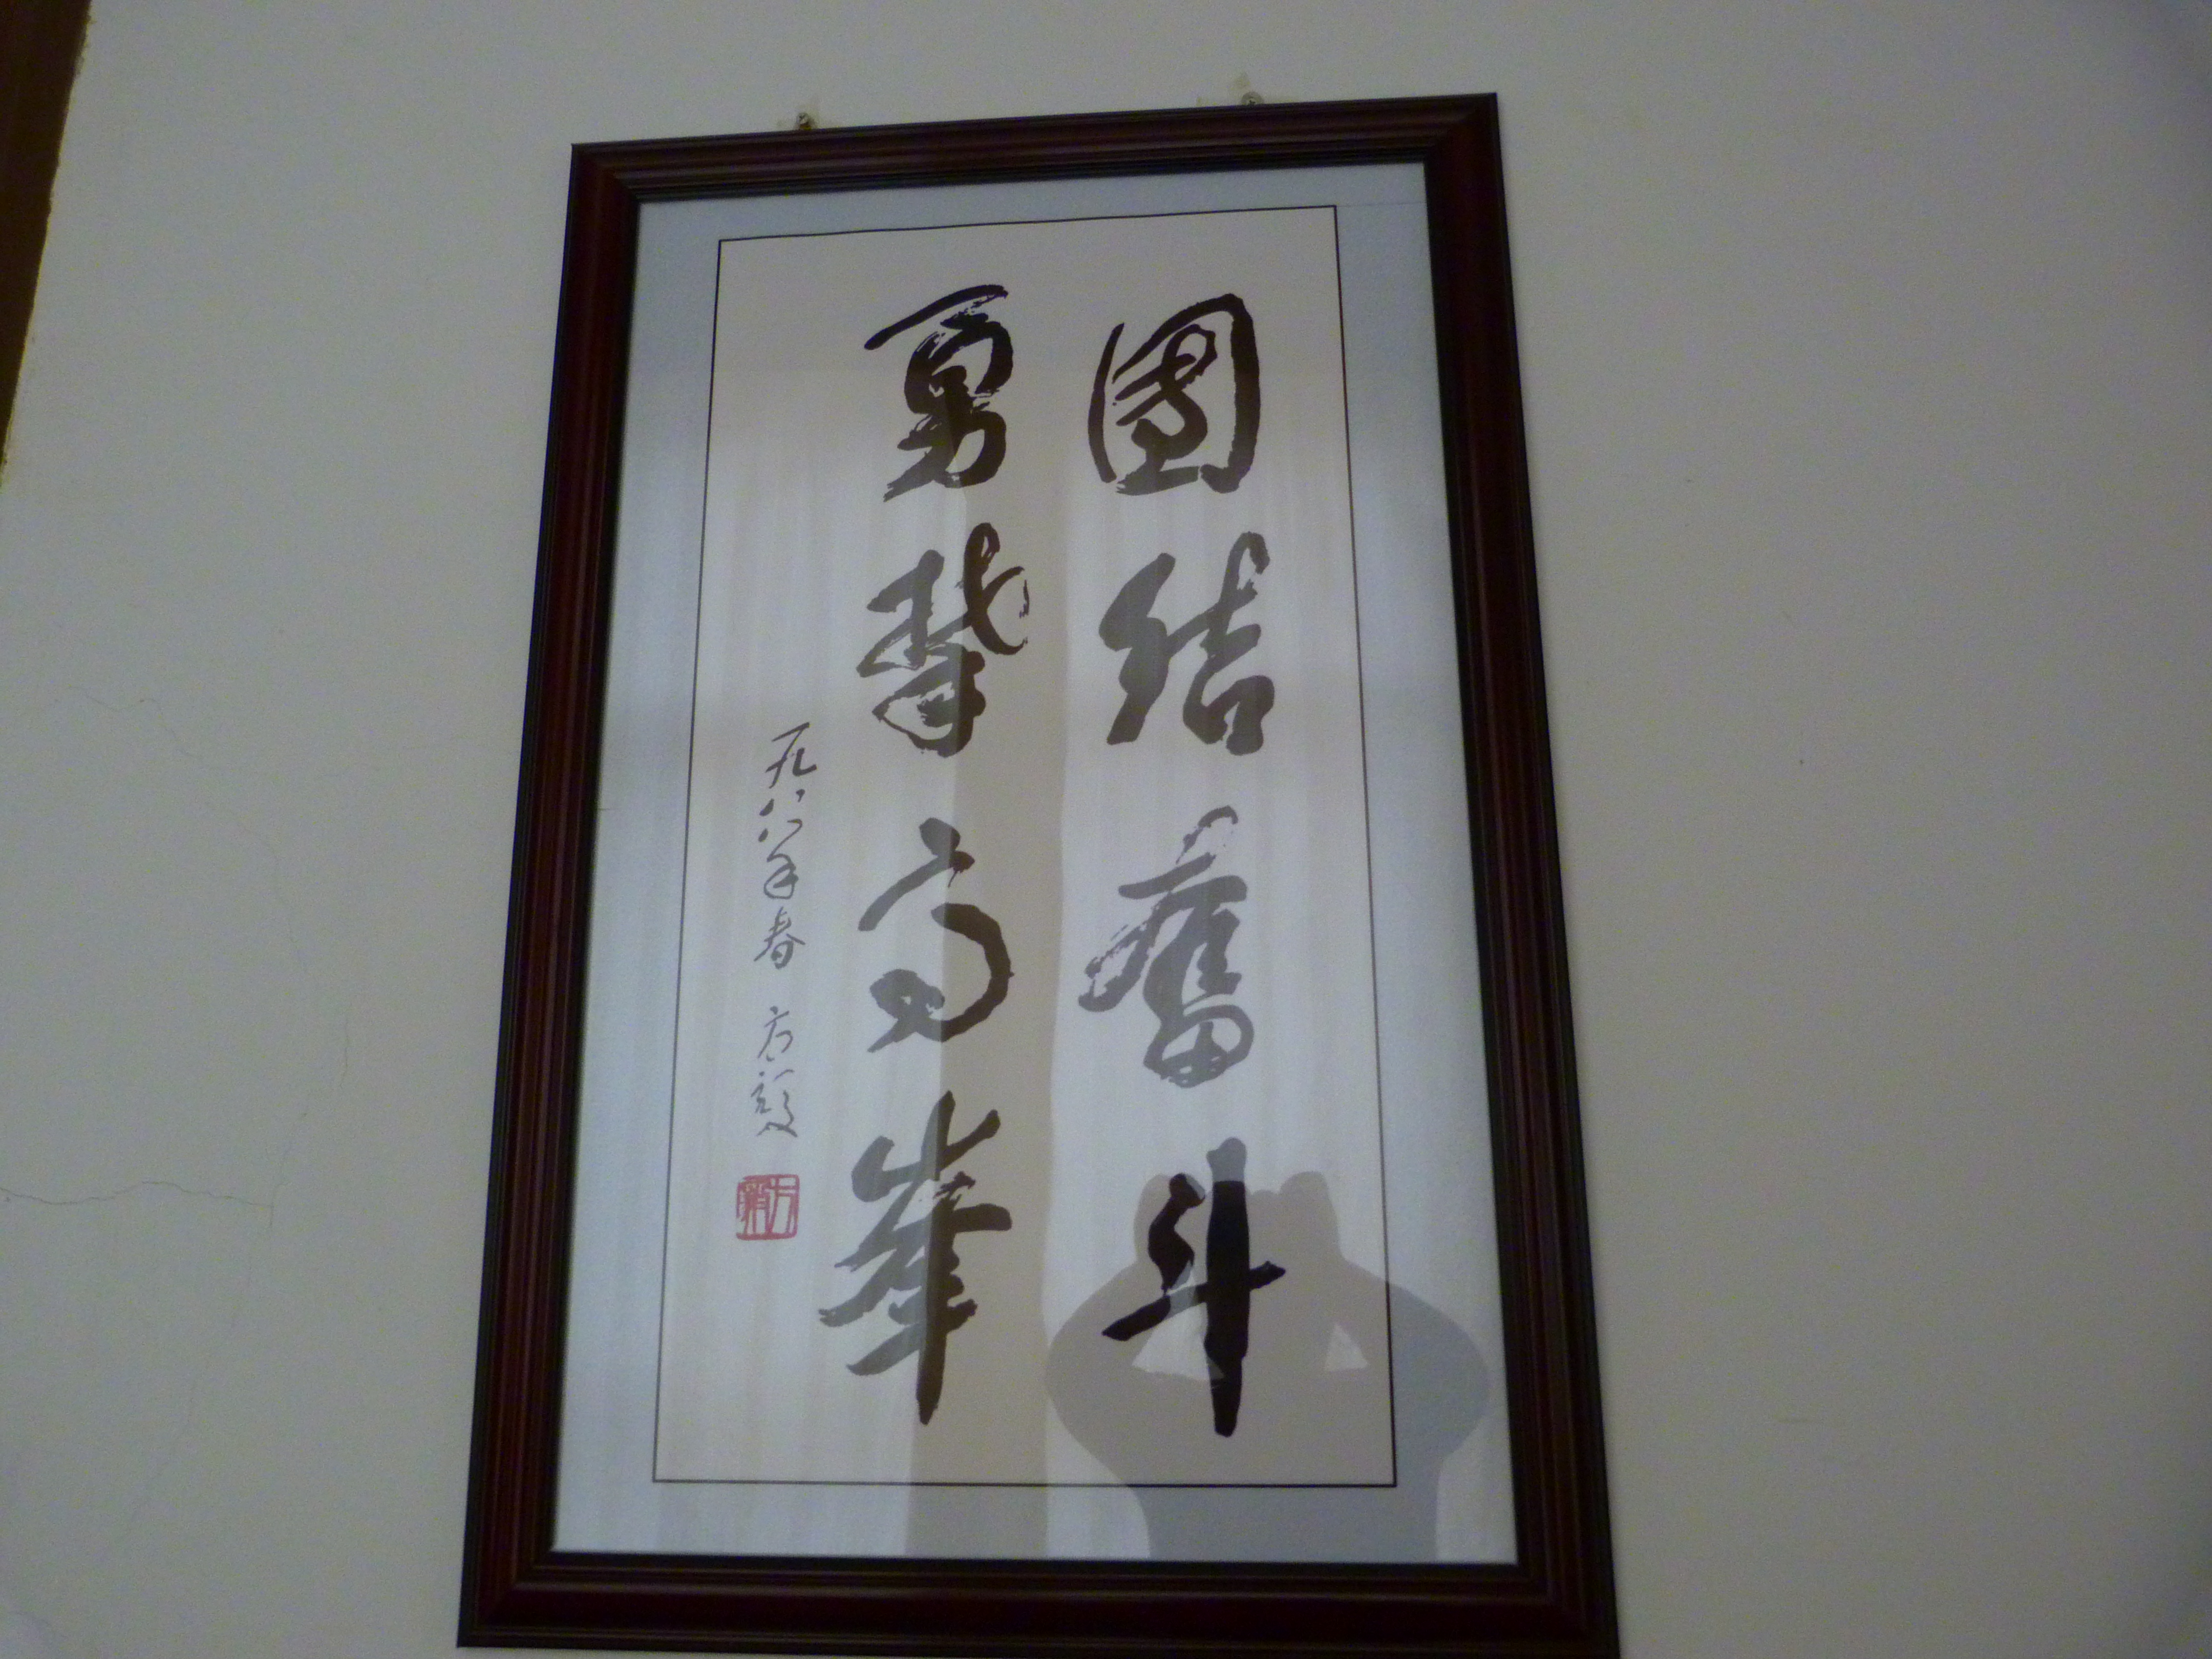 團结奮斗
勇攀高峰
一九八八年春 方毅